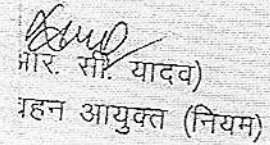 आर. सी. यादव)
वहन आयुक्त (नियम)